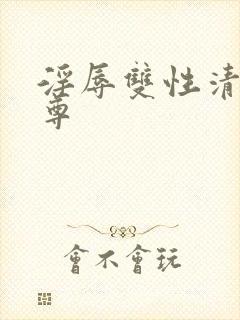 淫辱雙性清
尊
會不會玩